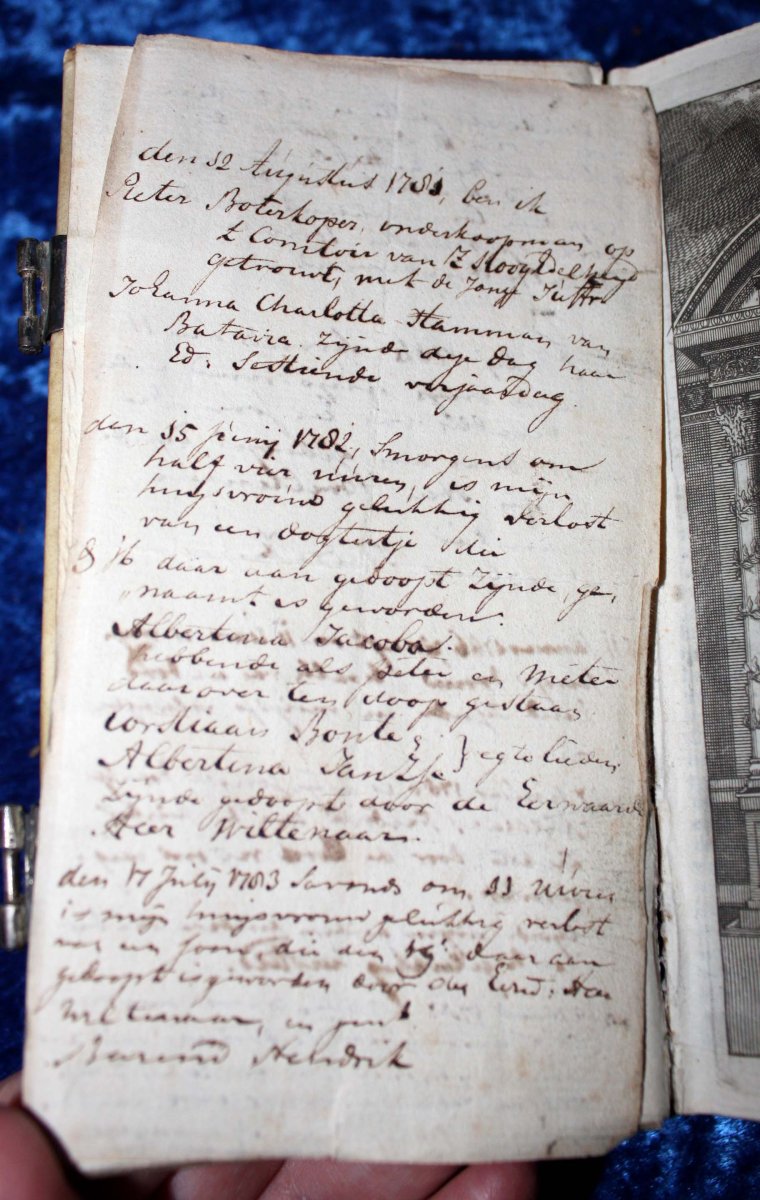 den 12 Augustus 1781, ben ik
Pieter Boterkoper, onderkoopman op
t Comtoir van Z Hoog Edelheyd
getrouwt, met de Jong Juffr
Johanna Charlotta Hamman van
Batavia. Zijnde deze dag haar
Ed: Sestiende verjaardag.
den 15 Junij 1782, Smorgens om
half vier uuren, is mijn
huijsvrouw gelukkig verlost
van een dogtertje die
daar aan gedoopt Zijnde, ge,
„naamt is geworden.
Albertina Jacoba.
hebbende als peter en meter
daar over ten doop gestaan
Corstiaan Bonte &
Albertina Jantzje } egte lieden,
Zijnde gedoopt door de Eerwaarde
Heer Wiltenaar.
den 17 Julij 1783 Savonds om 11 uuren
is mijn huijsvrouw gelukkig verlost
van een soon, die den 19 daar aan
gedoopt is geworden door den Eerw: Heer
Wiltenaar, en gent
Barend Hendrik